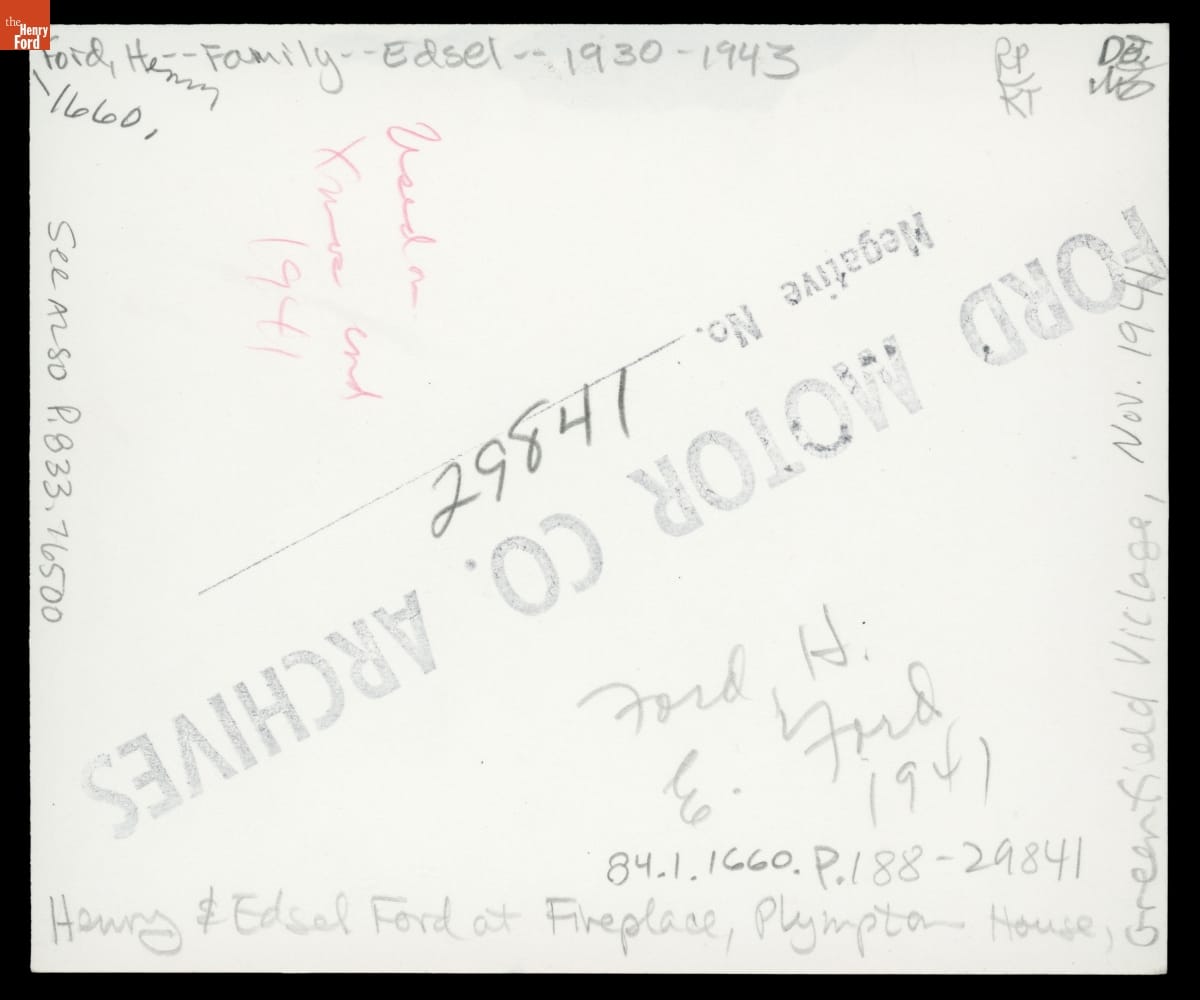 the
Henry
Ford
Ford, Henry--Family--Edsel--1930-1943
1660,
RP
KT
See Also P.833.76500
Used on
Xmas
1941
FORD MOTOR CO. ARCHIVES
Negative No.
29841
Ford, H.
Ford
E.
1941
84.1.1660.P.188-29841
Henry & Edsel Ford at Fireplace, Plympton House,
Greenfield Village, Nov. 1941